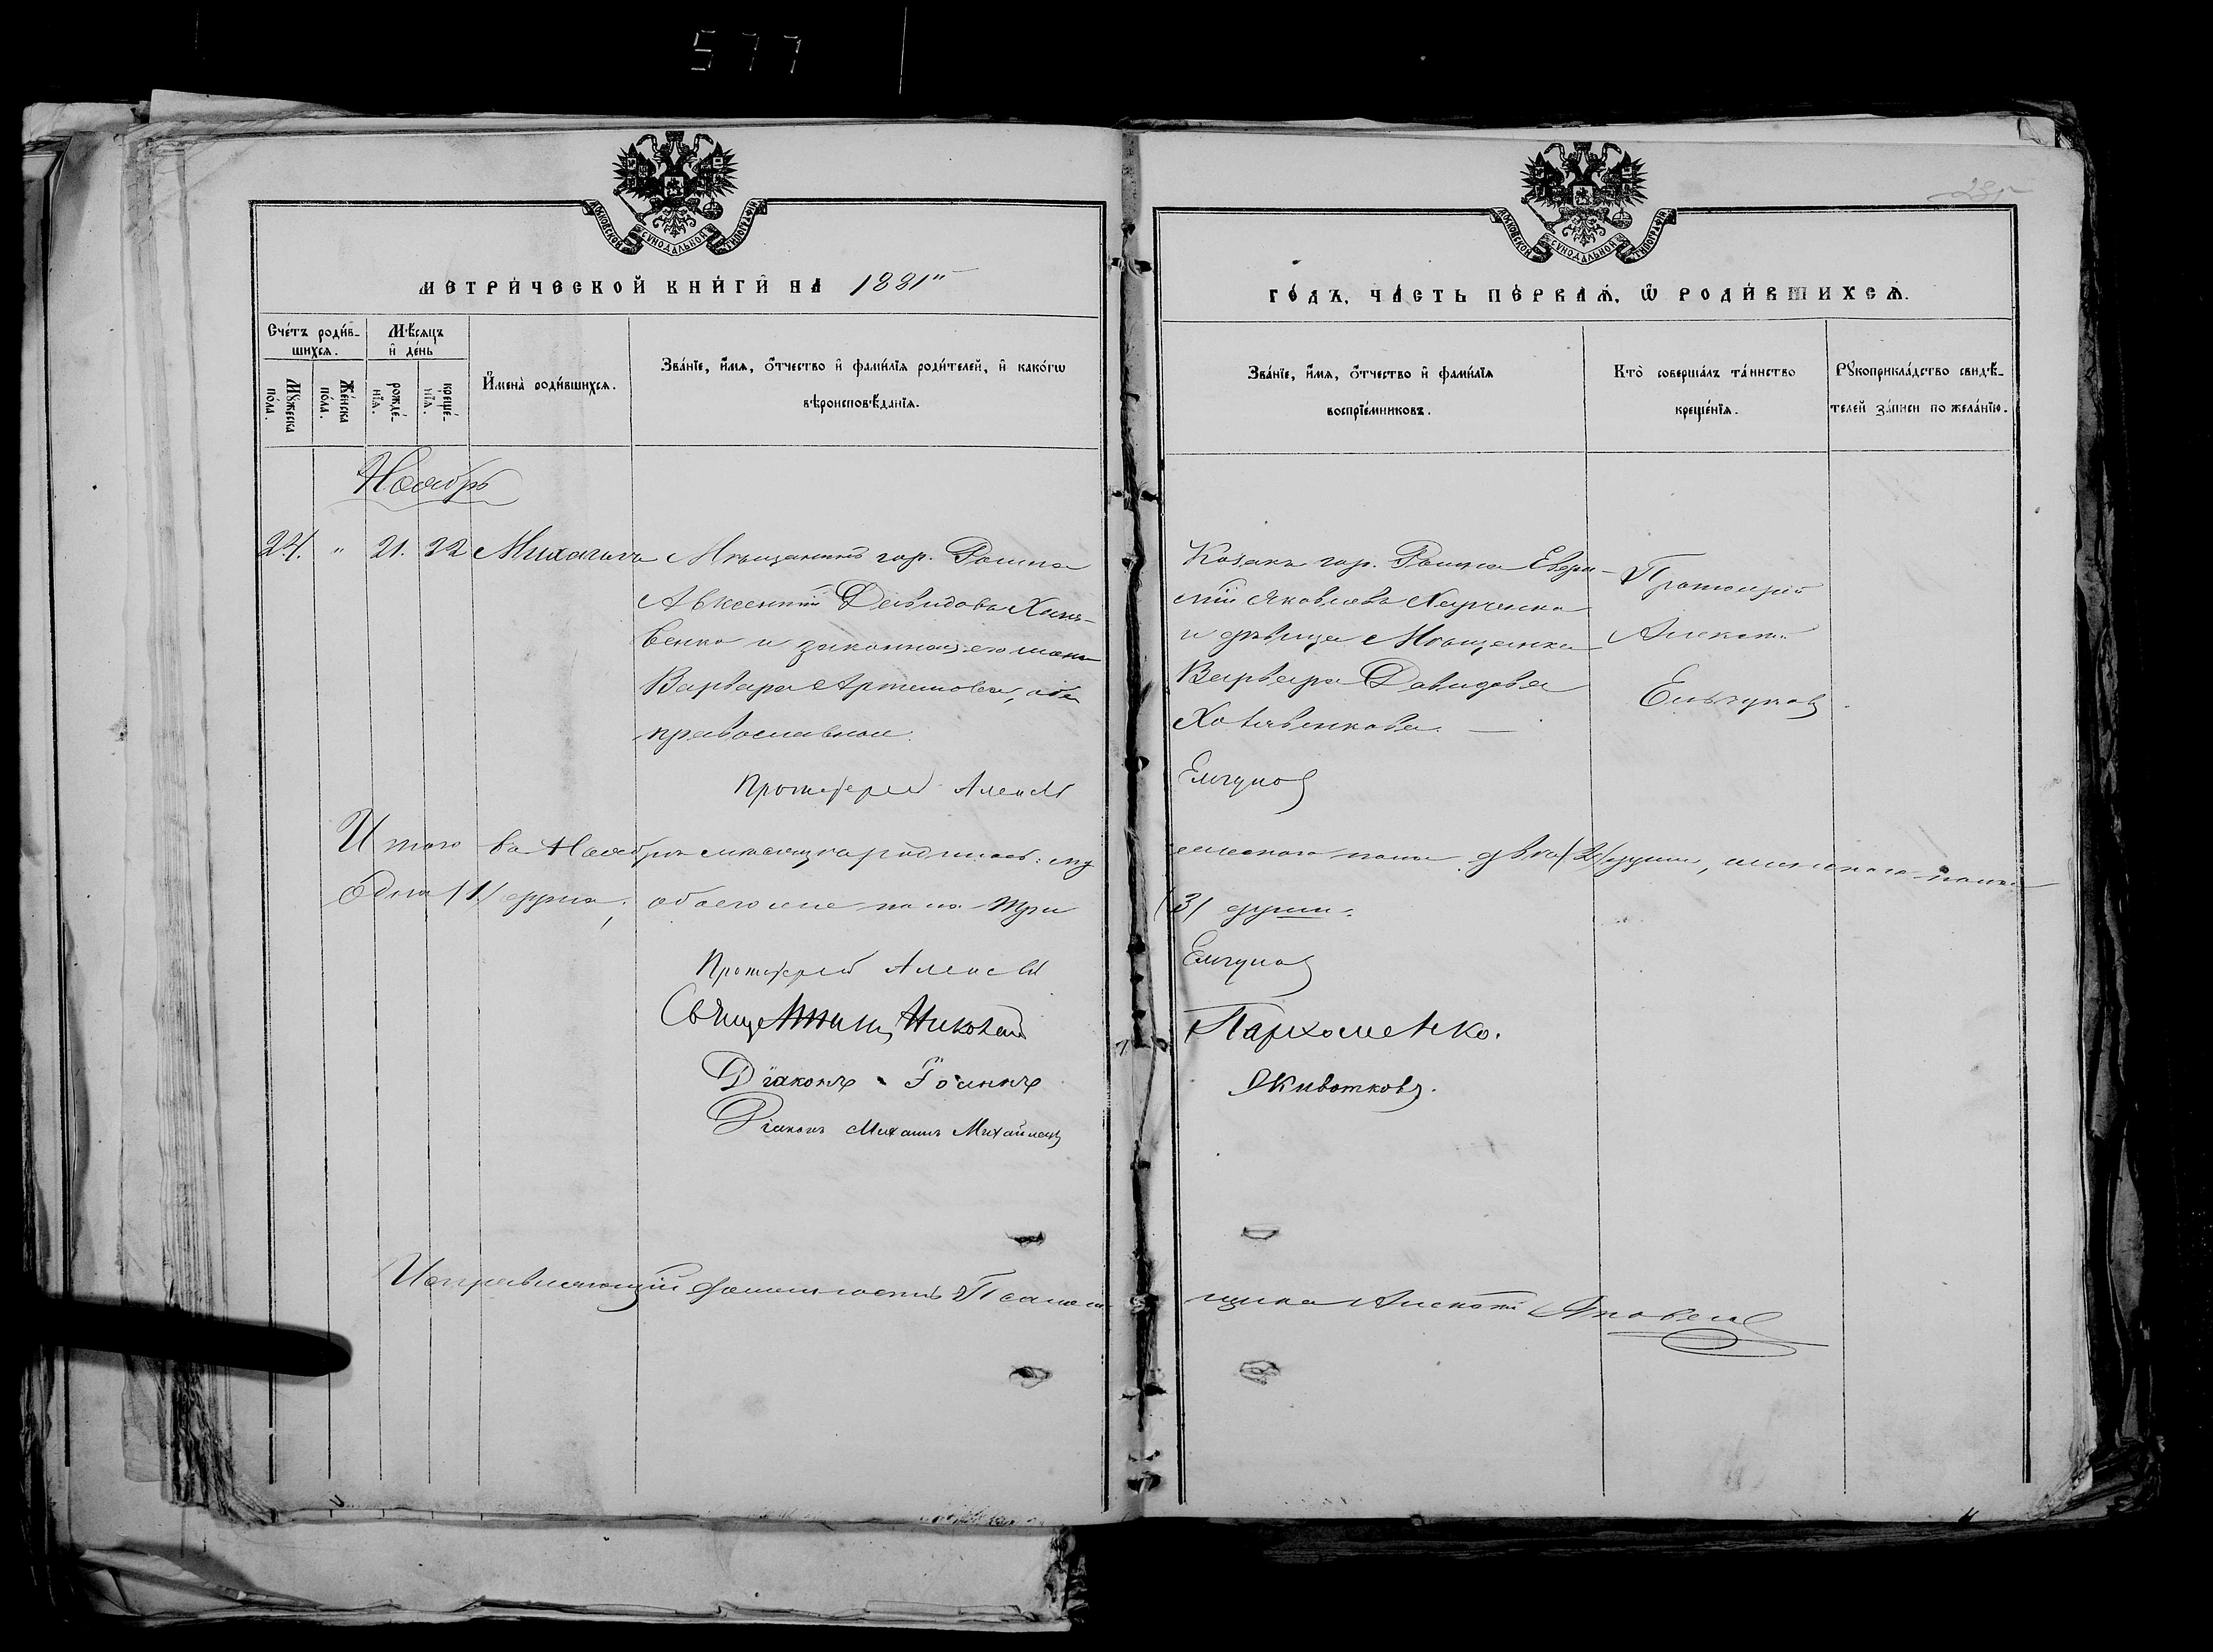 577
МОСКОВСКОЙ СѴНОДАЛЬНОЙ ТИПОГРАФІИ
МЕТРИ́ЧЕСКОЙ КНИ́ГИ НА 1881"
Сче́тъ роди́в-
шихсѧ.
Мѣ́сѧцъ
и де́нь
Мꙋ́жеска
по́ла.
Же́нска
по́ла.
рожде́-
нїѧ.
креще́-
нїѧ.
И҆мена̀ роди́вшихсѧ.
Зва́нїе, и҆́мѧ, ѻ҆́тчество и҆ фами́лїѧ роди́телей, и҆ како́гѡ
вѣроисповѣ́данїѧ.
Ноябрь
24. " 21. 22 Михаилъ
Мѣщанинъ гор. Ромна
Авксентій Давидовъ Хотъ-
венко и законная его жена
Варвара Артемовна, оба
православные.
Протоіерей Алексѣй
Итого въ Ноябрѣ мѣсяцѣ родилось: му
одна (1) душа, обоего же пола три
Протоіерей Алексѣй
Священникъ Николай
Діаконъ Іоаннъ
Діаконъ Михаилъ
Исправляющій должность Псалом
МОСКОВСКОЙ СѴНОДАЛЬНОЙ ТИПОГРАФІИ
ГО́ДЪ, ЧА́СТЬ ПЕ́РВАѦ, Ѡ҆ РОДИ́ВШИХСѦ.
Зва́нїе, и҆́мѧ, ѻ҆́тчество и҆ фами́лїѧ
воспрїе́мниковъ.
Кто̀ соверша́лъ та́инство
креще́нїѧ.
Рꙋкоприкла́дство свидѣ́-
телей за́писи по жела́нїю.
Козакъ гор. Ромна
Яковлевъ Харченко
и дѣвица Мѣщанка
Варвара Давидова
Хотвенкова. —
Протоіерей
Алексѣй
Ельчуковъ.
Ельчуковъ
жескаго пола двѣ (2) души, женскаго пола
(3) души.
Ельчуковъ
Пархоменко.
Животковъ.
щика Алексѣй Яковлевъ